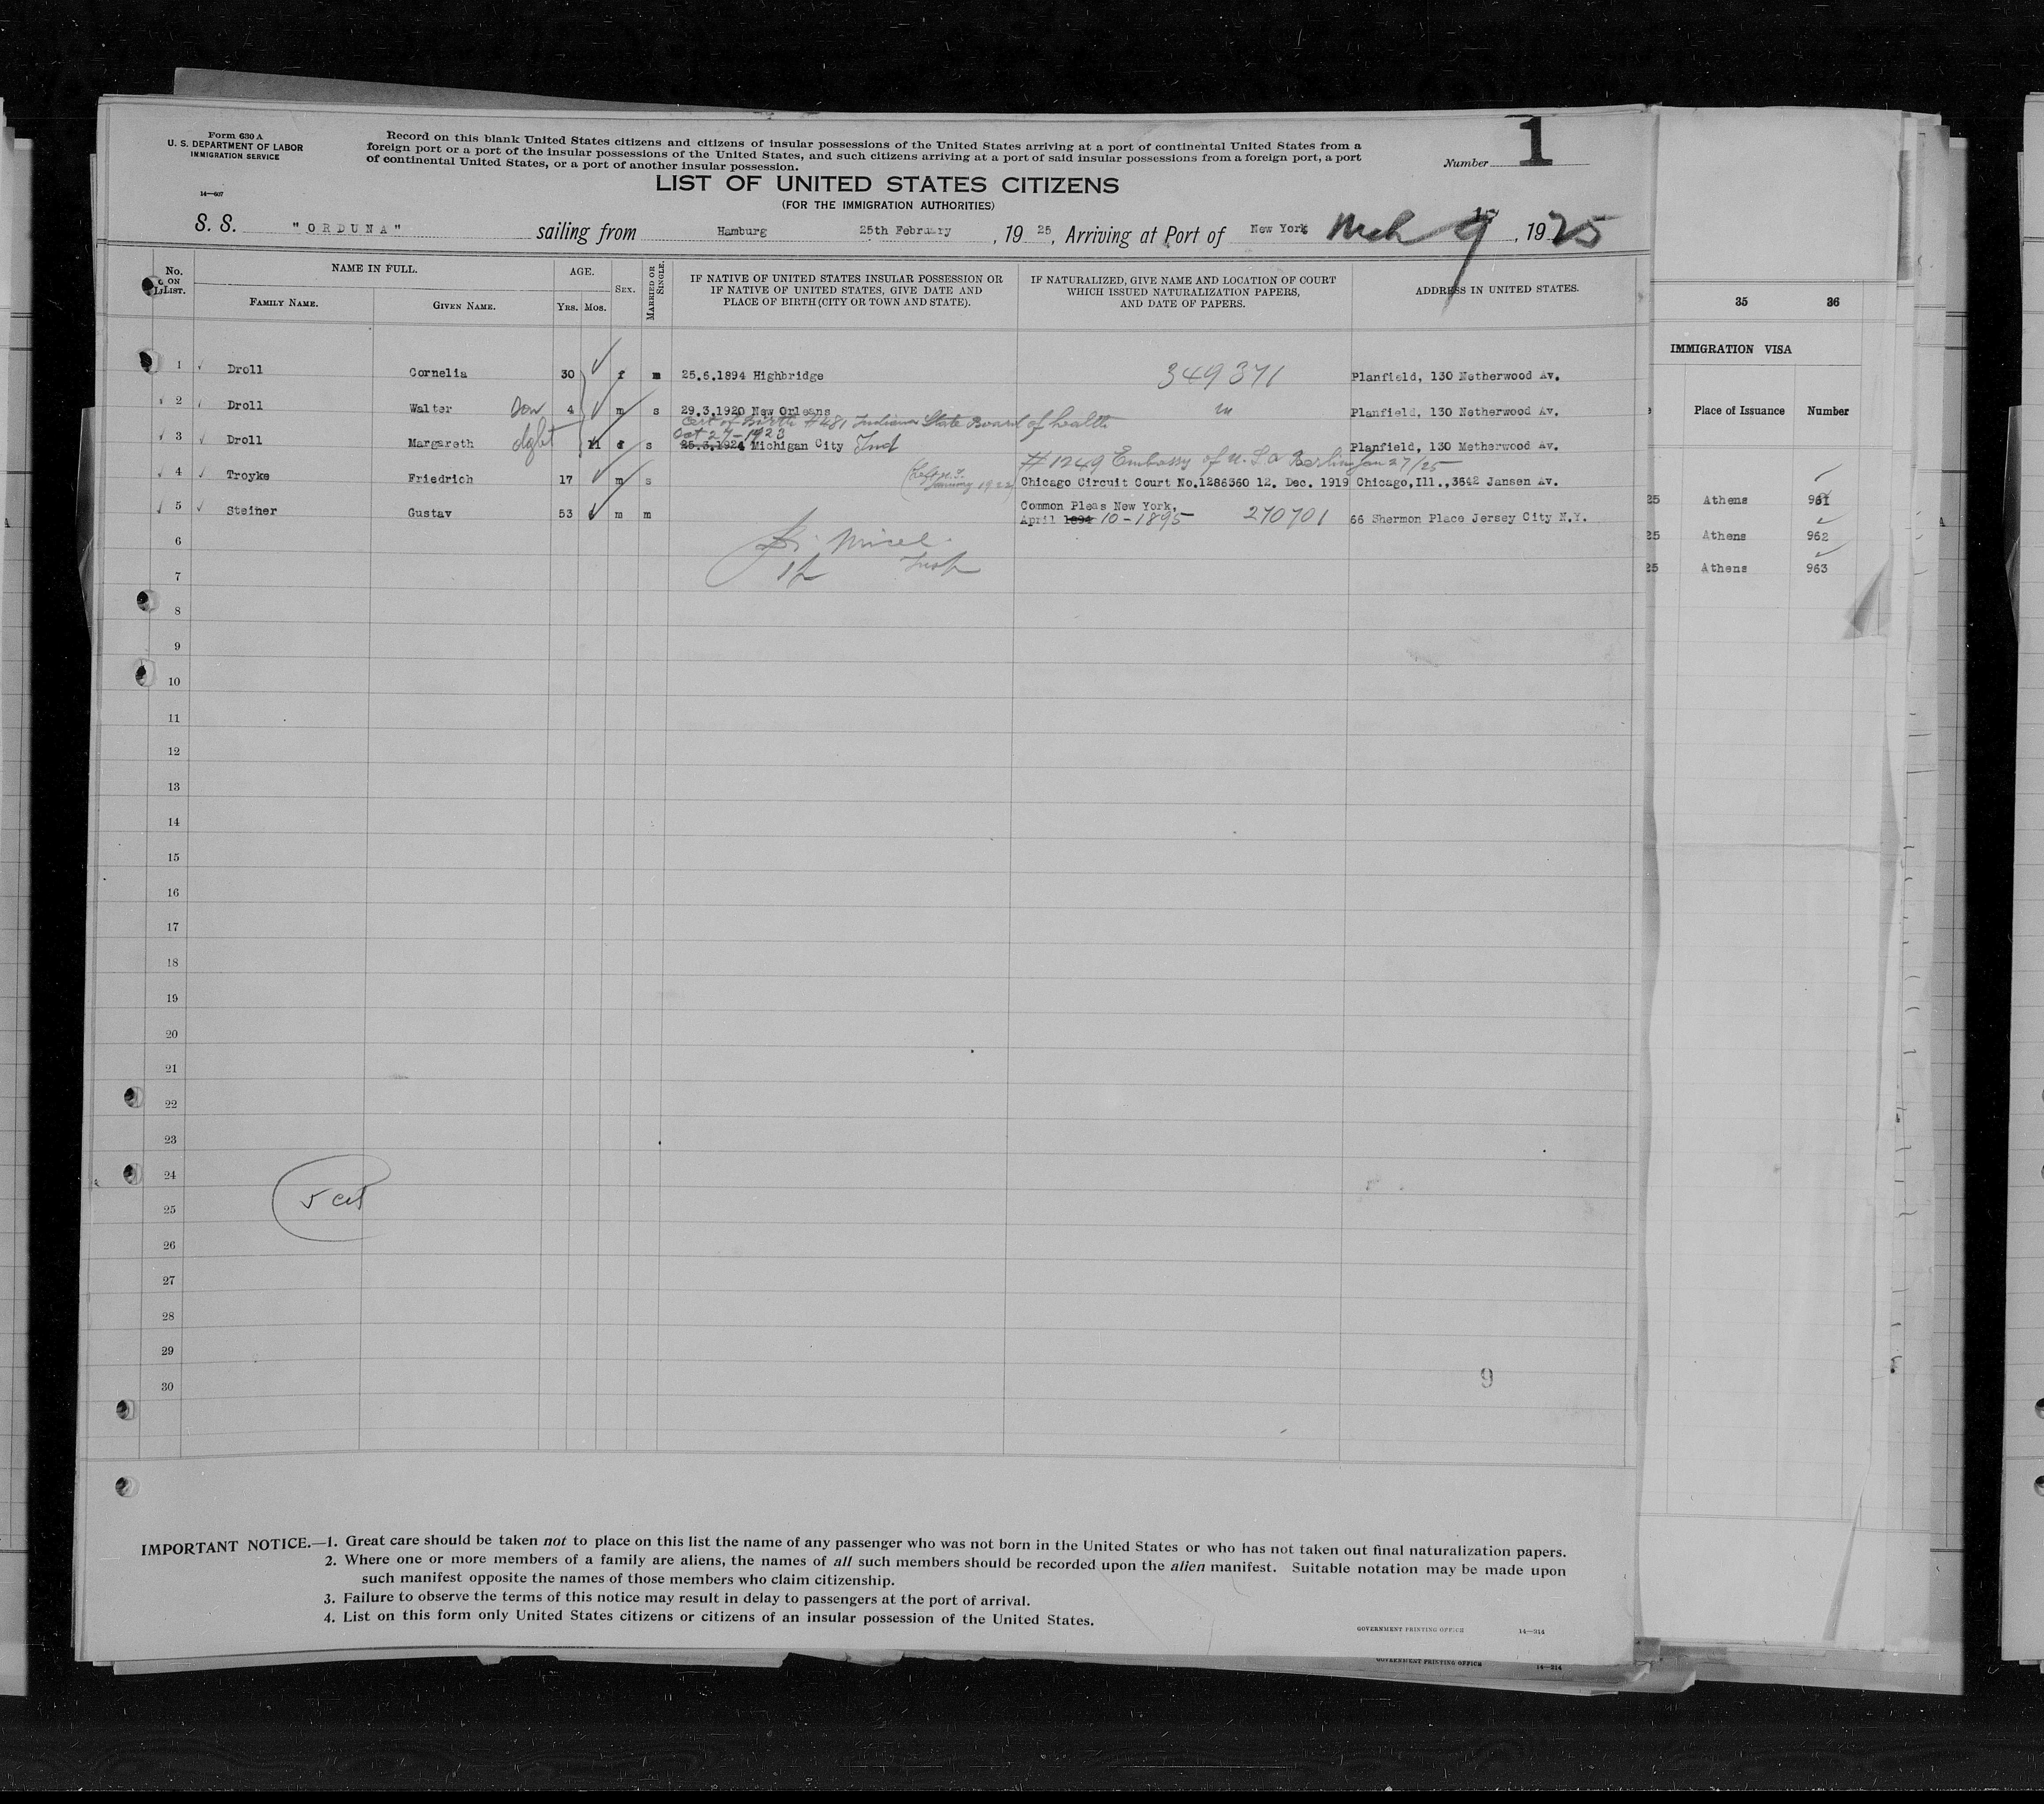 Form 630 A
U. S. DEPARTMENT OF LABOR
IMMIGRATION SERVICE
14—607
Record on this blank United States citizens and citizens of insular possessions of the United States arriving at a port of continental United States from a
foreign port or a port of the insular possessions of the United States, and such citizens arriving at a port of said insular possessions from a foreign port, a port
of continental United States, or a port of another insular possession.
Number 1
LIST OF UNITED STATES CITIZENS
(FOR THE IMMIGRATION AUTHORITIES)
S. S. "ORDUNA" sailing from Hamburg 25th February, 1925, Arriving at Port of New York Mch 9, 1925
No. ON LIST. NAME IN FULL. AGE. SEX. MARRIED OR SINGLE. IF NATIVE OF UNITED STATES INSULAR POSSESSION OR IF NATIVE OF UNITED STATES, GIVE DATE AND PLACE OF BIRTH (CITY OR TOWN AND STATE). IF NATURALIZED, GIVE NAME AND LOCATION OF COURT WHICH ISSUED NATURALIZATION PAPERS, AND DATE OF PAPERS. ADDRESS IN UNITED STATES.
FAMILY NAME. GIVEN NAME. YRS. MOS.
1 Droll Cornelia 30 f m 25.6.1894 Highbridge 349371 Planfield, 130 Netherwood Av.
2 Droll Walter Son 4 m s 29.3.1920 New Orleans Planfield, 130 Netherwood Av.
Cert of Birth #481 Indiana State Board of health
Oct 27-1923
3 Droll Margareth dght 11 f s 25.3.1924 Michigan City Ind Planfield, 130 Metherwood Av.
#1249 Embassy of U.S.A Berlin Jan 27/25
4 Troyke Friedrich 17 m s Chicago Circuit Court No.1286360 12. Dec. 1919 Chicago,Ill.,3642 Jansen Av.
January 1922
5 Steiner Gustav 53 m m Common Pleas New York,
April 1894 10-1895 270701 66 Shermon Place Jersey City N.Y.
6
7
8
9
10
11
12
13
14
15
16
17
18
19
20
21
22
23
24
25
26
27
28
29
30
5 cit
9
IMPORTANT NOTICE.—1. Great care should be taken not to place on this list the name of any passenger who was not born in the United States or who has not taken out final naturalization papers.
2. Where one or more members of a family are aliens, the names of all such members should be recorded upon the alien manifest. Suitable notation may be made upon
such manifest opposite the names of those members who claim citizenship.
3. Failure to observe the terms of this notice may result in delay to passengers at the port of arrival.
4. List on this form only United States citizens or citizens of an insular possession of the United States.
GOVERNMENT PRINTING OFFICE 14—314
GOVERNMENT PRINTING OFFICE 14—314
35 36
IMMIGRATION VISA
Place of Issuance Number
25 Athens 961
25 Athens 962
25 Athens 963